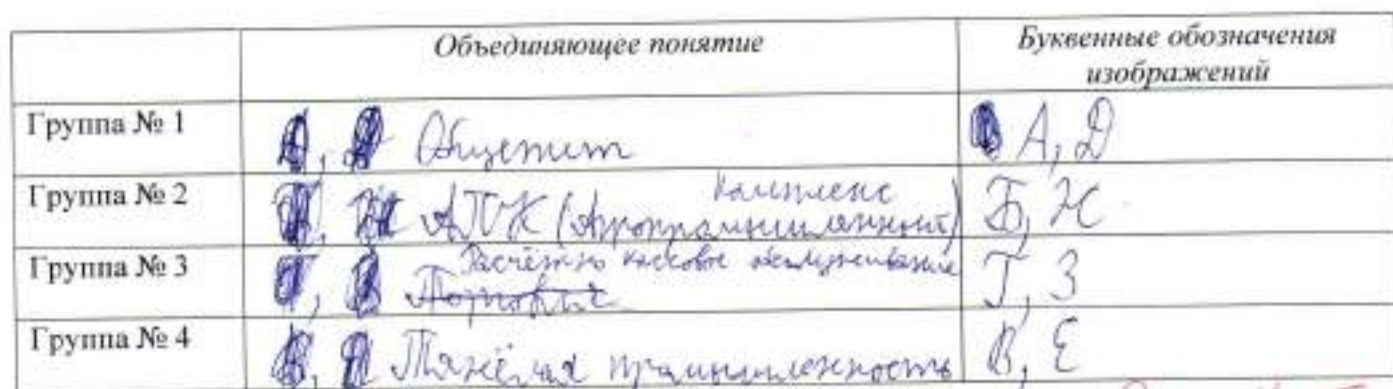 Объединяющее понятие
Буквенные обозначения изображений
Группа № 1
Общепит
А, Д
Группа № 2
АПК (Агропромышленный комплекс)
Б, Ж
Группа № 3
Расчётно кассовое обслуживание
Торговля
Г, З
Группа № 4
Тяжёлая промышленность
В, Е